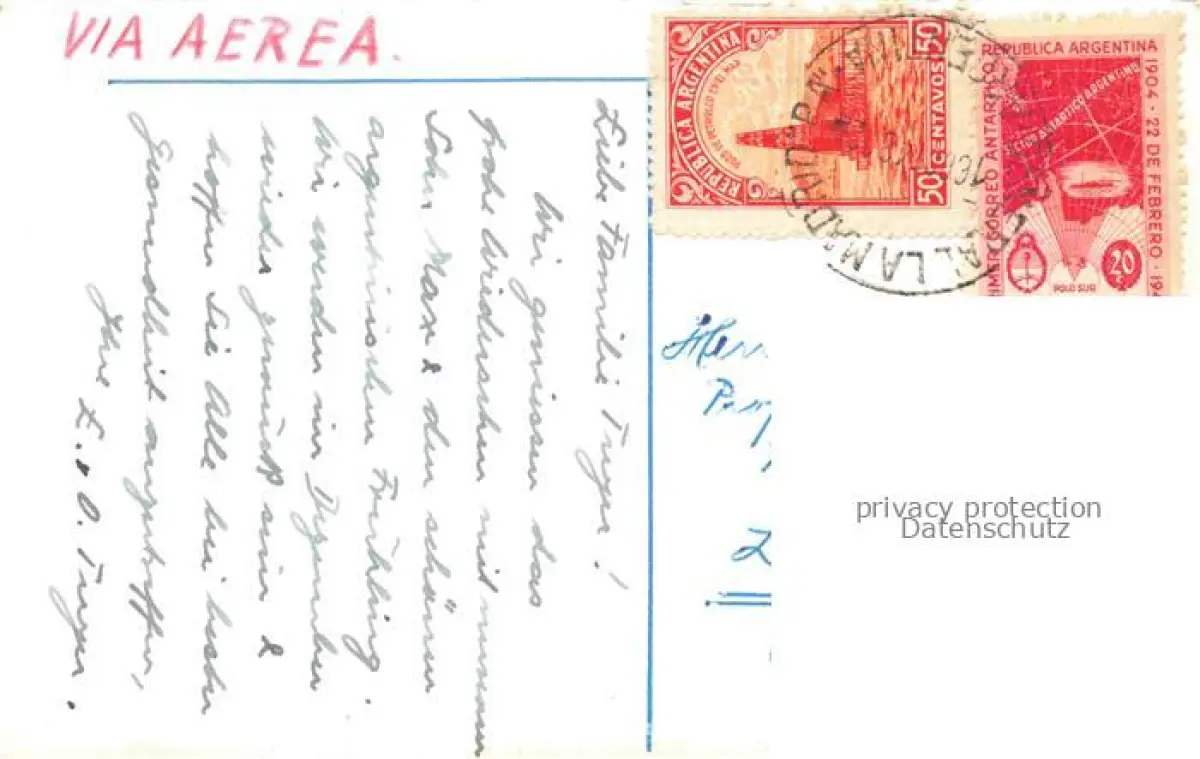 VIA AEREA.
Liebe Familie Unger!
Wir geniessen das
frohe Wiedersehen mit unserem
Sohn Max & den schönen
argentinischen Frühling.
Wir werden im Dezember
wieder zurück sein &
hoffen Sie Alle bei bester
Gesundheit anzutreffen,
Ihre E. & O. Unger.
REPUBLICA ARGENTINA
POZO DE PETROLEO EN EL MAR
50 CENTAVOS 50
REPUBLICA ARGENTINA
1904 · 22 DE FEBRERO · 19
PRIMER CORREO ANTARTICO
SECTOR ANTARTICO ARGENTINO
POLO SUR
20 c
LAMADRID
Herr
privacy protection
Datenschutz